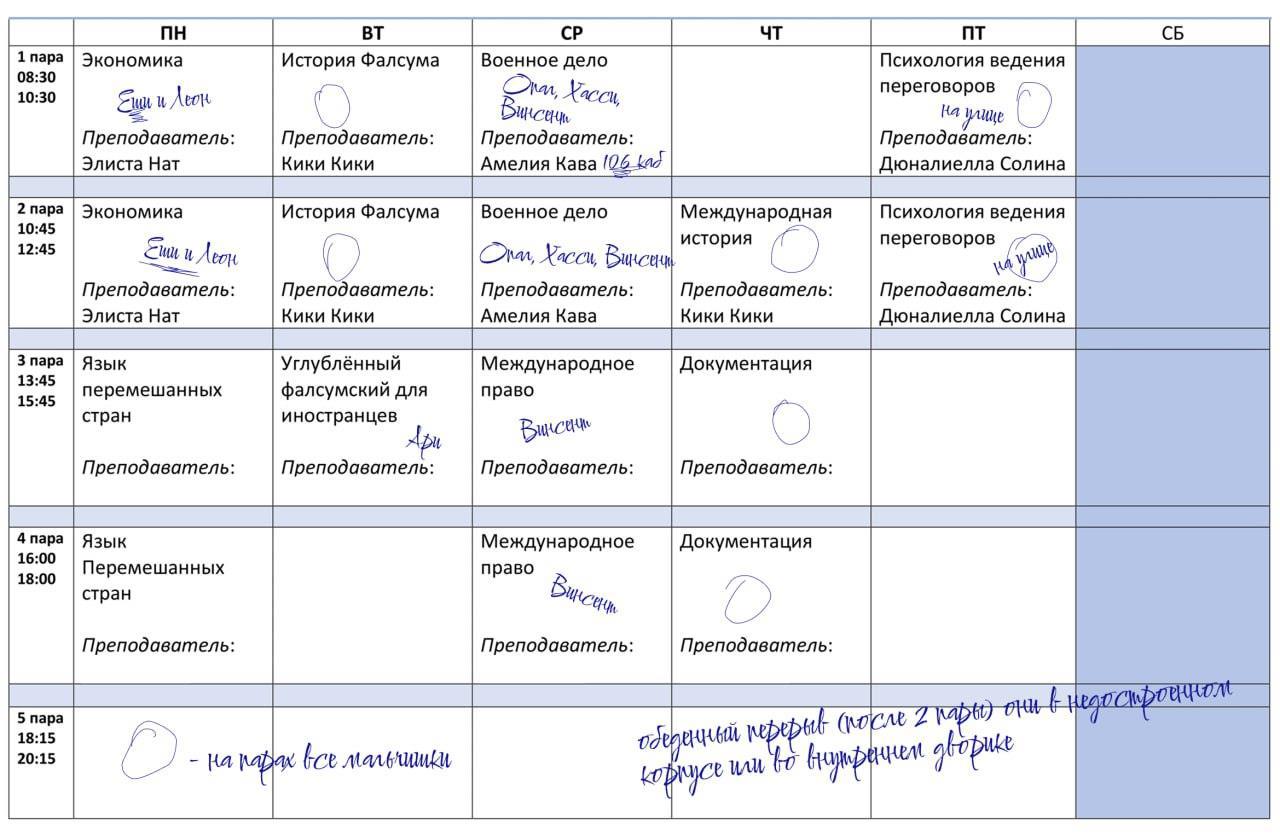 ПН ВТ СР ЧТ ПТ СБ
1 пара
08:30
10:30
Экономика
Еши и Леон
Преподаватель:
Элиста Нат
История Фалсума
Преподаватель:
Кики Кики
Военное дело
Опал, Хасси,
Винсент
Преподаватель:
Амелия Кава 106 каб
Психология ведения
переговоров
на улице
Преподаватель:
Дюналиелла Солина
2 пара
10:45
12:45
Экономика
Еши и Леон
Преподаватель:
Элиста Нат
История Фалсума
Преподаватель:
Кики Кики
Военное дело
Опал, Хасси, Винсент
Преподаватель:
Амелия Кава
Международная
история
Преподаватель:
Кики Кики
Психология ведения
переговоров
на улице
Преподаватель:
Дюналиелла Солина
3 пара
13:45
15:45
Язык
перемешанных
стран
Преподаватель:
Углублённый
фалсумский для
иностранцев
Ари
Преподаватель:
Международное
право
Винсент
Преподаватель:
Документация
Преподаватель:
4 пара
16:00
18:00
Язык
Перемешанных
стран
Преподаватель:
Международное
право
Винсент
Преподаватель:
Документация
Преподаватель:
5 пара
18:15
20:15
- на парах все мальчишки
обеденный перерыв (после 2 пары) они в недостроенном
корпусе или во внутреннем дворике